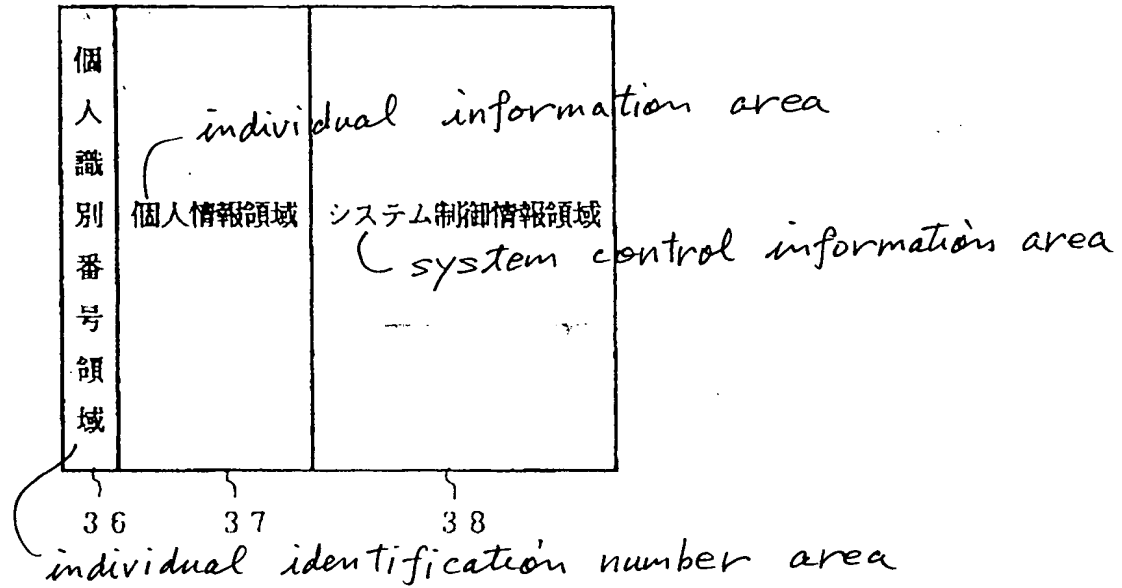 個人識別番号領域
individual information area
個人情報領域
システム制御情報領域
system control information area
36
37
38
individual identification number area